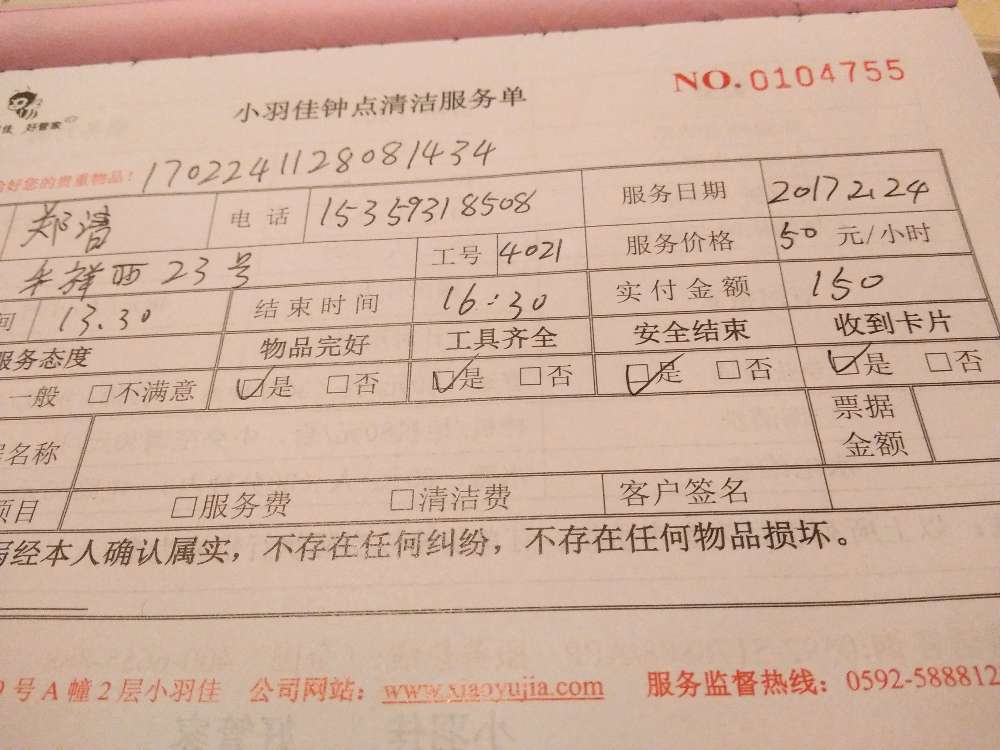 小羽佳钟点清洁服务单 NO.0104755
佳 好管家
好您的贵重物品! 1702241128081434
郑清 电话 15359318508 服务日期 2017 2.24
禾祥西23号 工号 4021 服务价格 50 元/小时
间 13.30 结束时间 16:30 实付金额 150
服务态度 物品完好 工具齐全 安全结束 收到卡片
一般 □不满意 ☑是 □否 ☑是 □否 ☑是 □否 ☑是 □否
名称 票据金额
项目 □服务费 □清洁费 客户签名
经本人确认属实，不存在任何纠纷，不存在任何物品损坏。
9号A幢2层小羽佳 公司网站：www.xiaoyujia.com 服务监督热线：0592-5888812